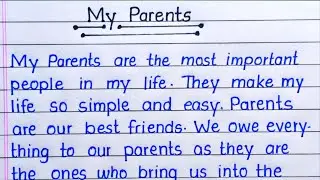 My Parents
My Parents are the most important
people in my life. They make my
life so simple and easy. Parents
are our best friends. We owe every-
thing to our parents as they are
the ones who bring us into the